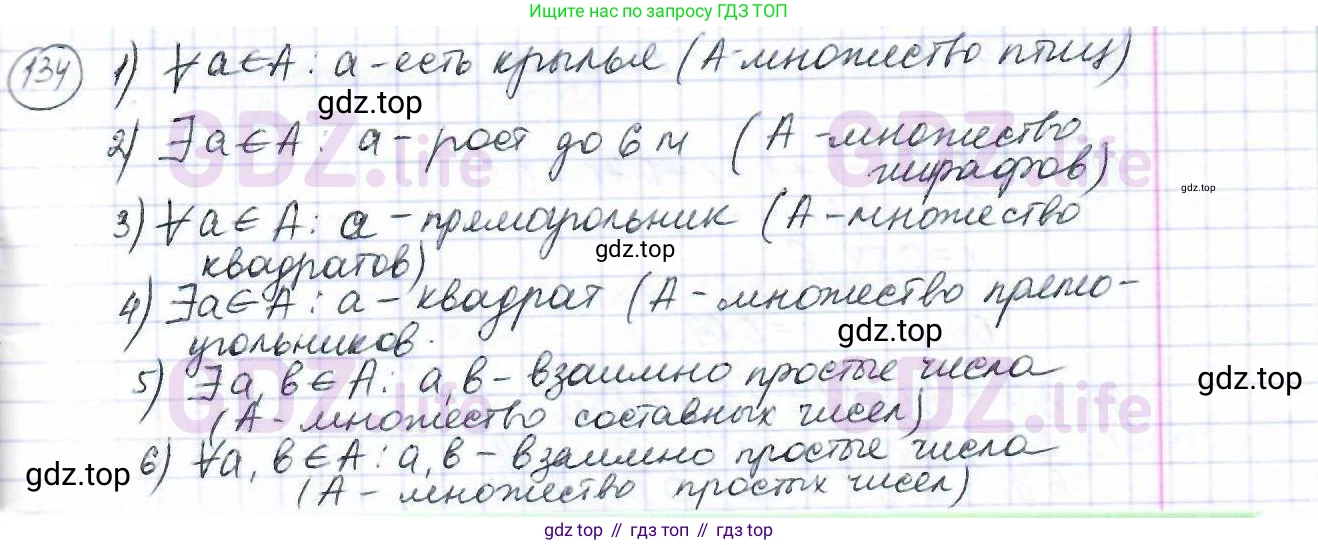 Ищите нас по запросу ГДЗ ТОП
134 1) ∀a∈A: a-есть крылья (A-множество птиц)
gdz.top
2) ∃a∈A: a-рост до 6 м (A-множество
жирафов)
GDZ.life GDZ.life
gdz.top
3) ∀a∈A: a-прямоугольник (A-множество
gdz.top
квадратов)
4) ∃a∈A: a-квадрат (A-множество прямо-
gdz.top
угольников.
5) ∃a, b∈A: a, b-взаимно простые числа
gdz.top
(A-множество составных чисел)
GDZ.life GDZ.life
6) ∀a, b∈A: a, b-взаимно простые числа
gdz.top
(A-множество простых чисел)
gdz top // гдз топ // гдз top